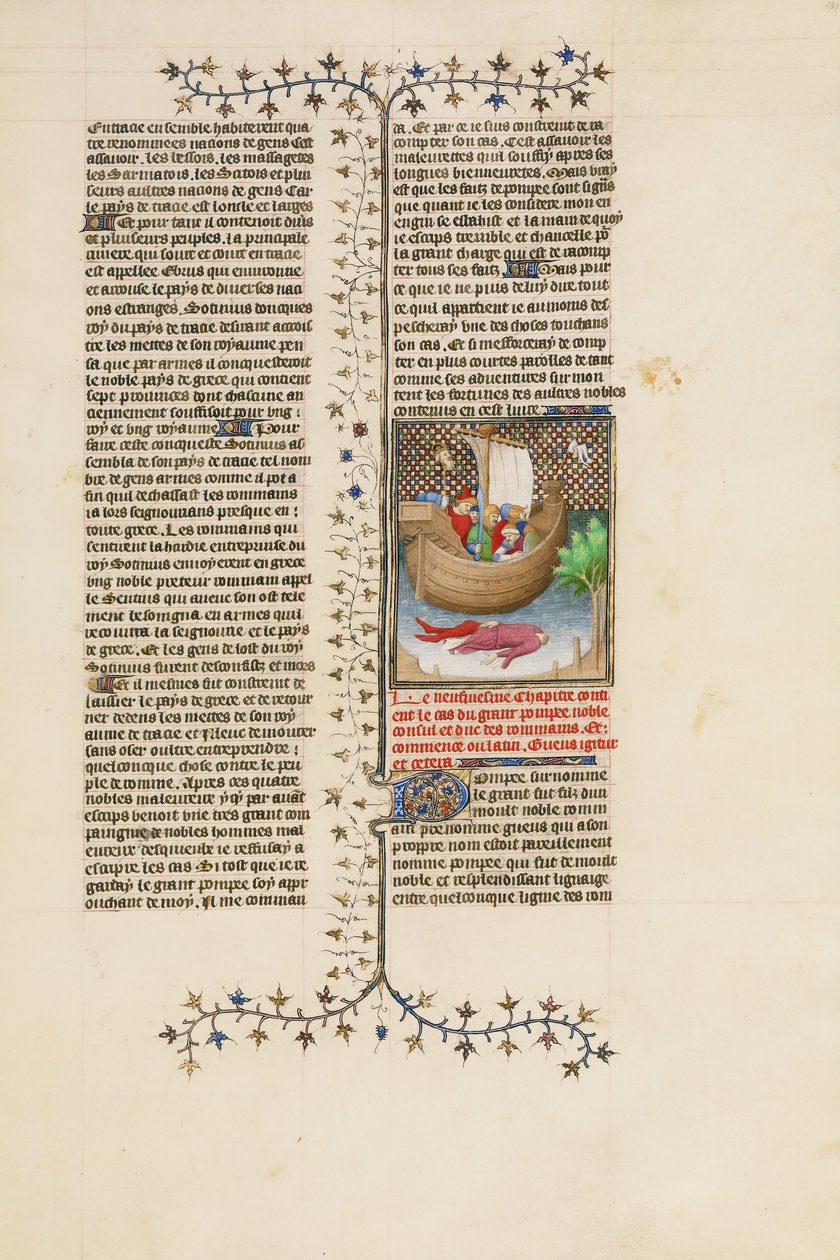 En tracie en semble habiterent qua
tre renommees nacions de gens Cest
assavoir. les bessois. les massagetes
les Sarmatois. les Scitois et plu
seurs aultres nacions de gens Car
le pays de tracie est long le et larges
Et pour tant il contenoit duis
et pluiseurs peuples. la principale
riviere qui sourt et court en tracie
est appellee Ebrus qui environne
et arrouse le pays de diverses naci
ons estranges. Sotimus doncques
roy du pays de tracie desirant accrois
tre les mettes de son royaume pen
sa que par armes il conquesteroit
le noble pays de grece qui contient
sept provinces dont chascune an
ciennement souffisoit pour ung :
roy et ung royaume Pour
faire ceste conqueste Sotimus as
sembla de son pays de tracie tel nom
bre de gens armes comme il pot a
fin quil dechassast les rommains
ia lors seignourians presque en :
toute grece. Les rommains qui
sentirent la hardie entreprinse du
roy Sotimus envoyerent en grece
ung noble preteur rommain appel
le Sencius qui avecc son ost tele
ment besoigna en armes quil
recouvra la seignourie et le pays
de grece. Et les gens de lost du roy
Sotimus furent desconfitz et mors
Et il mesmes fut constreint de
laissier le pays de grece et de retour
ner dedens les mettes de son roy
aume de tracie et illeuc demourer
sans oser oultre entreprendre :
quelconcque chose contre le peu
ple de romme. Apres ces quatre
nobles maleureux y q par avant
escrips benoit une tres grant com
paingnie de nobles hommes mal
eureux desqueulx ie reffusay a
escripre les cas Si tost que ie re
garday le grant pompee soy appr
ouchant de moy. Il me comman
da. Et par ce ie suis constreint de ra
compter son cas. Cest assavoir les
maleurettes quil souffry apres ses
longues bieneuretes. Mais vray
est que les faitz de pompee sont si gns
que quant ie les considere mon en
engin se esbahist et la main de quoy
ie escrips tremble et chancelle po
la grant charge qui est de racomp
ter tous ses faitz. Mais pour
ce que ie ne puis de luy dire tout
ce quil appartient ie au moins des
pescheray une des choses touchans
son cas. Et si mefforceray de comp
ter en plus courtes parolles de tant
comme ses adventures sur mon
tent les fortunes des aultres nobles
contenus en cest livre.
Le neufviesme Chapitre conti
ent le cas du grant pompee noble
consul et duc des rommains. Et:
commence ou latin. Gneus igitur
et cetera.
Pompee surnomme
le grant fut filz dun
moult noble romm
ain prenomme gneus qui a son
proppre nom estoit pareillement
nomme pompee qui fut de moult
noble et resplendissant lignaige
entre quelconcque lignie des rom